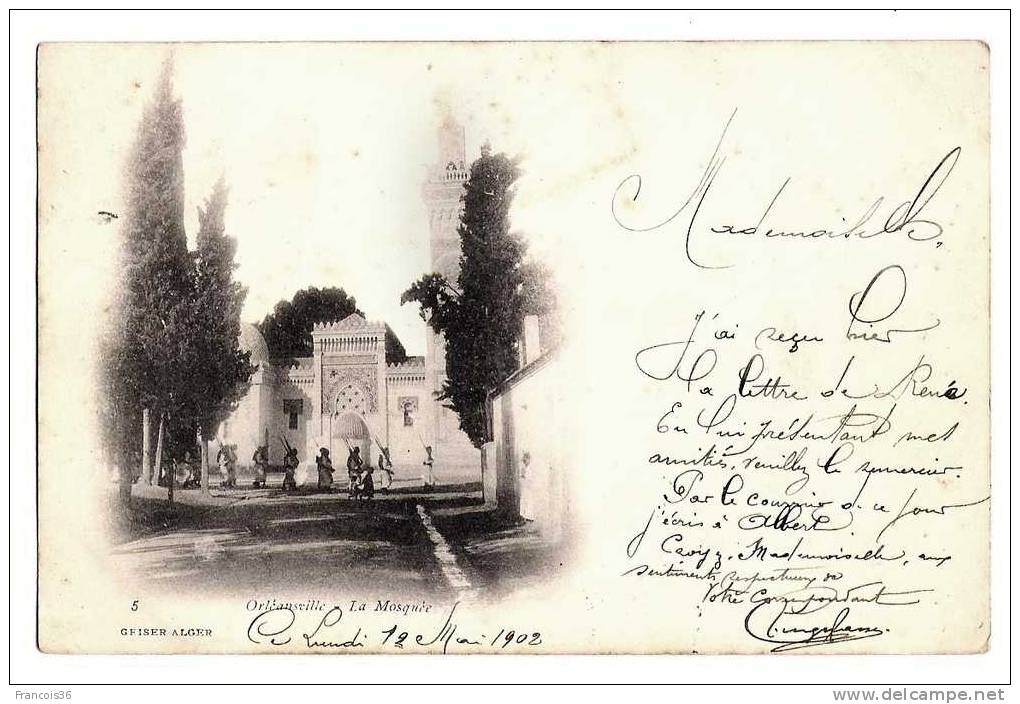 Mademoiselle,
J'ai reçu hier
la lettre de René.
En lui présentant mes
amitiés, veuillez le remercier.
Par le courrier de ce jour
j'écris à Albert
Croyez, Mademoiselle, aux
sentiments respectueux de
Votre Correspondant
5 Orléansville - La Mosquée
GEISER ALGER
Ce Lundi 12 Mai 1902
Francois36
www.delcampe.net